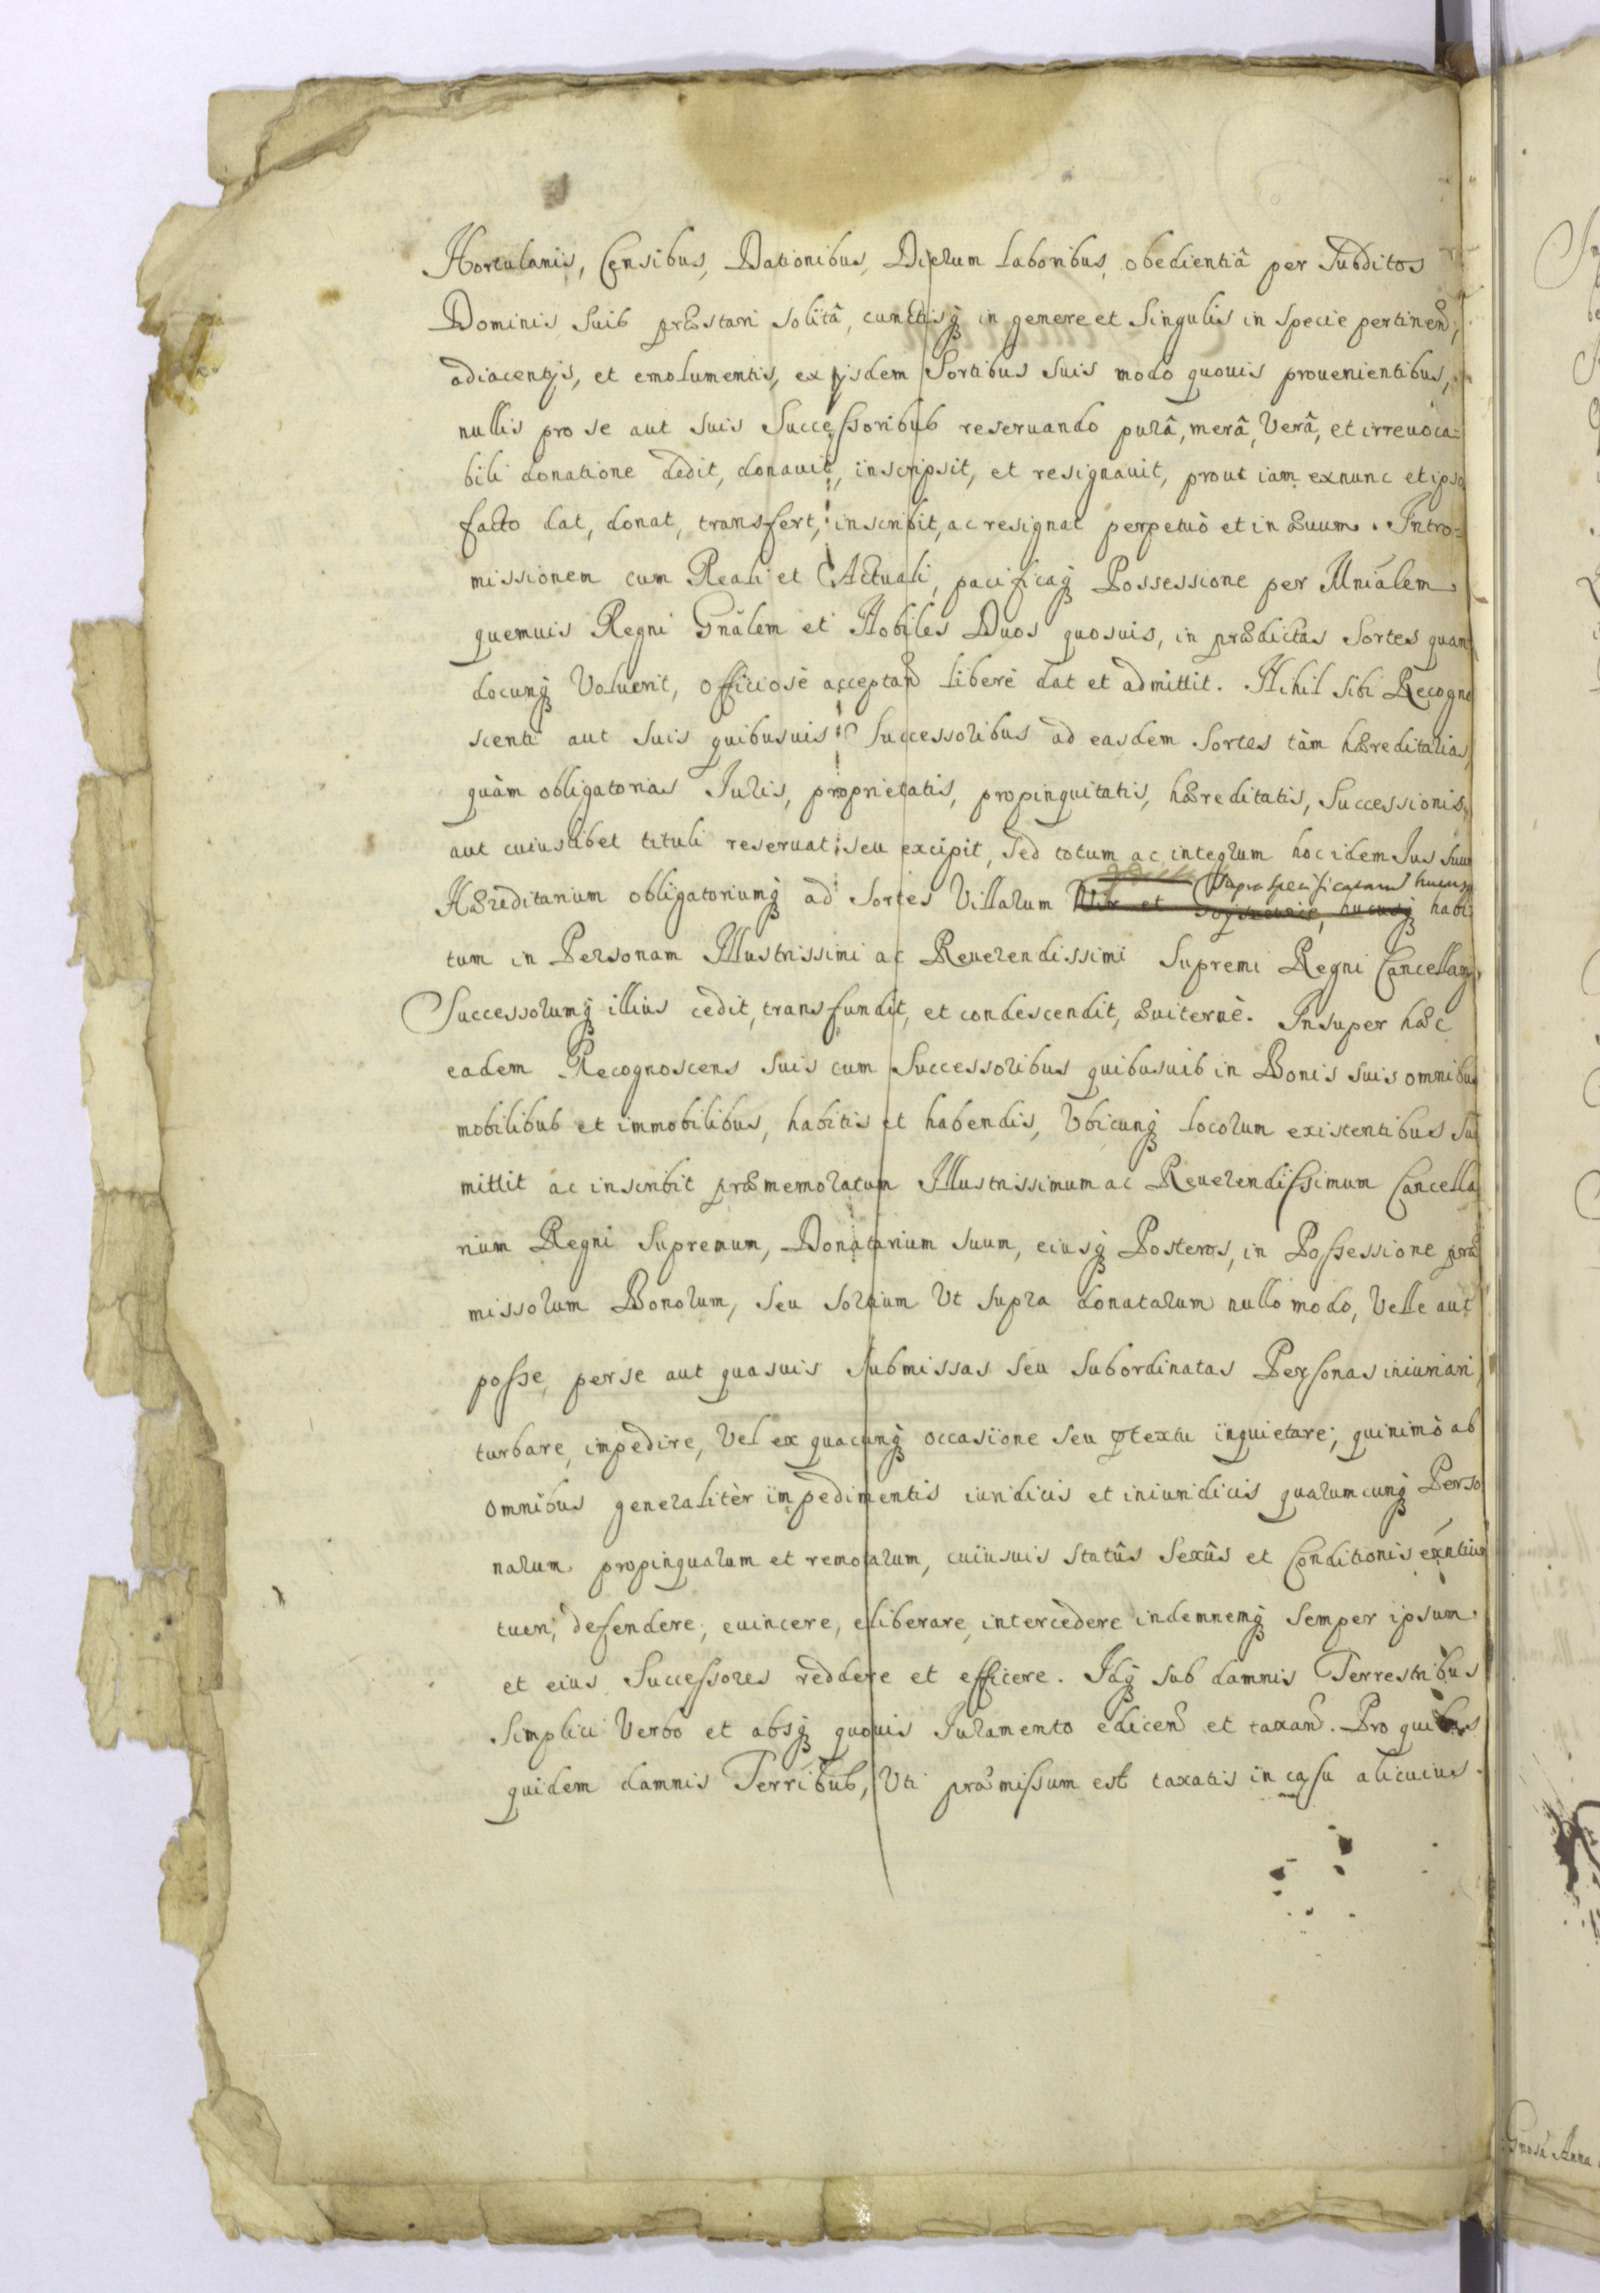 Hortulanis, Censibus, Dationibus, Dierum laboribus, obedientiâ per Subditos
Dominis suis præstari solitâ, cunctisq; in genere et singulis in specie pertinen,
adiacentijs, et emolumentis, ex ijsdem Sortibus suis modo quouis prouenientibus,
nullis pro se aut suis Successoribus reseruando purâ, merâ, Verâ, et irreuoca=
bili donatione dedit, donauit, inscripsit, et resignauit, prout iam exnunc et ipso
facto dat, donat, transfert, inscribit, ac resignat perpetuò et in æuum. Intro=
missionem cum Reali et Actuali, pacificaq; Possessione per Mnialem
quemuis Regni Gnalem et Nobiles Duos quosuis, in prædictas Sortes quan
docunq; Voluerit, officiosè acceptan liberè dat et admittit. Nihil sibi Recogno
scenti aut suis quibusuis Successoribus ad easdem Sortes tàm hæreditarias,
quàm obligatorias Iuris, proprietatis, propinquitatis, hæreditatis, Successionis,
aut cuiuslibet tituli reseruat, seu excipit, sed totum ac integrum hoc idem Ius suum
supra specificatarum hucusq;
Hæreditarium obligatoriumq; ad Sortes Villarum et hucusq; habi
tum in Personam Illustrissimi ac Reuerendissimi Supremi Regni Cancellarij,
Successorumq; illius cedit, transfundit, et condescendit, æuiternè. Insuper hæc
eadem Recognoscens suis cum Successoribus quibusuis in Bonis suis omnibus
mobilibus et immobilibus, habitis et habendis, Vbicunq; locorum existentibus su
mittit ac inscribit præmemoratum Illustrissimum ac Reuerendissimum Cancella
rium Regni Supremum, Donatarium suum, eiusq; Posteros, in Possessione præ
missorum Bonorum, seu Sortium Vt supra donatarum nullo modo, Velle aut
posse, per se aut quasuis submissas seu subordinatas Personas iniuriari,
turbare, impedire, Vel ex quacunq; occasione seu prtextu inquietare; quinimò ab
omnibus generalitèr impedimentis iuridicis et iniuridicis quarumcunq; Perso
narum propinquarum et remotarum, cuiusuis statûs sexûs et Conditionis exntium
tueri, defendere, euincere, eliberare, intercèdere indemnemq; semper ipsum
et eius Successores reddere et efficere. Idq; sub damnis Terrestribus
simplici Verbo et absq; quouis Iuramento edicen et taxan. Pro quibus
quidem damnis Terribus, Vti præmissum est taxatis in casu alicuius
Gnosa Anna